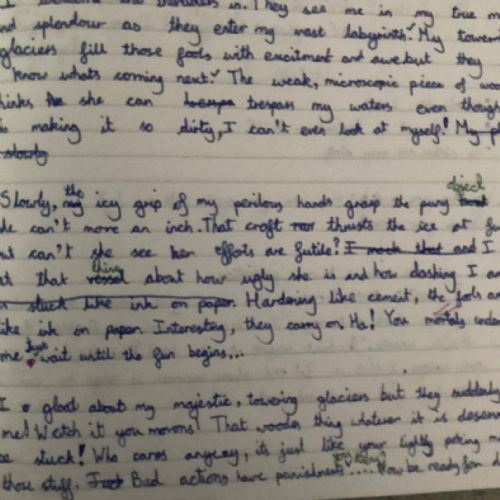 I welcome the in. They see me in my true
nd splendour as they enter my vast labyrinth. My toweri
glaciers fill those fools with excitment and awe but they
know whats coming next. The weak, microscopic piece of wo
hinks she can trespass my waters even though
s making it so dirty, I can't even look at myself! My p
slowly
Slowly, the icy grip of my perilous hands grasp the puny object
he can't move an inch. That craft thrusts the ice at fu
ut can't she see her efforts are futile? I mock that and I
at that vessel thing about how ugly she is and how dashing I a
stuck like ink on paper. Hardening like cement, the fools ar
like ink on paper. Interesting, they carry on. Ha! You mortals unde
me just wait until the fun begins...
I gloat about my majestic, towering glaciers but they suddenly
me! Watch it you morons! That wooden thing whatever it is deser
be stuck! Who cares anyway, its just like your lightly poking me
those stuff. Bad actions have punishments.... Now be ready for d